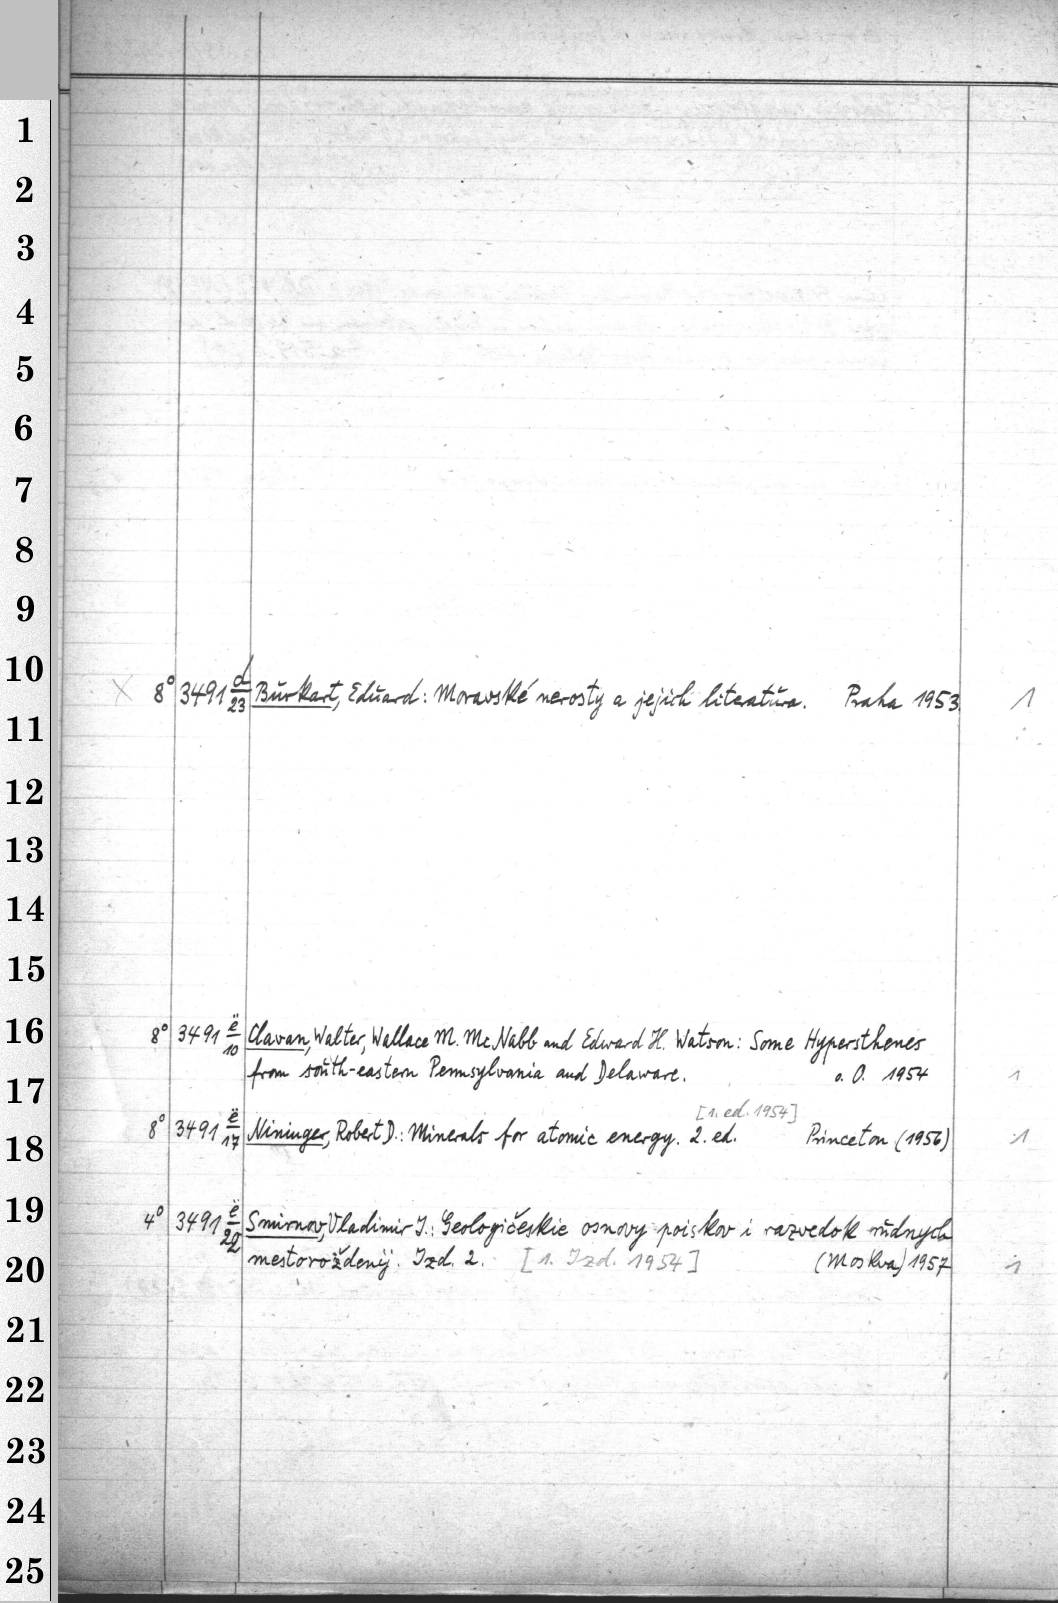 1
2
3
4
5
6
7
8
9
10
X 8° 3491 d/23 Burkart, Eduard: Moravské nerosty a jejich literatura. Praha 1953. 1
11
12
13
14
15
16
8° 3491 ë/10 Clavan, Walter, Wallace M. Mc Nabb and Edward H. Watson: Some Hypersthenes
from south-eastern Pennsylvania and Delaware. o. O. 1954 1
17
[1. ed. 1954]
8° 3491 ë/17 Nininger, Robert D.: Minerals for atomic energy. 2. ed. Princeton (1956) 1
18
19
4° 3491 ë/22 Smirnov, Vladimir I.: Geologičeskie osnovy poiskov i razvedok rudnych
mestoroždenij. Izd. 2. [1. Izd. 1954] (Moskva) 1957 1
20
21
22
23
24
25